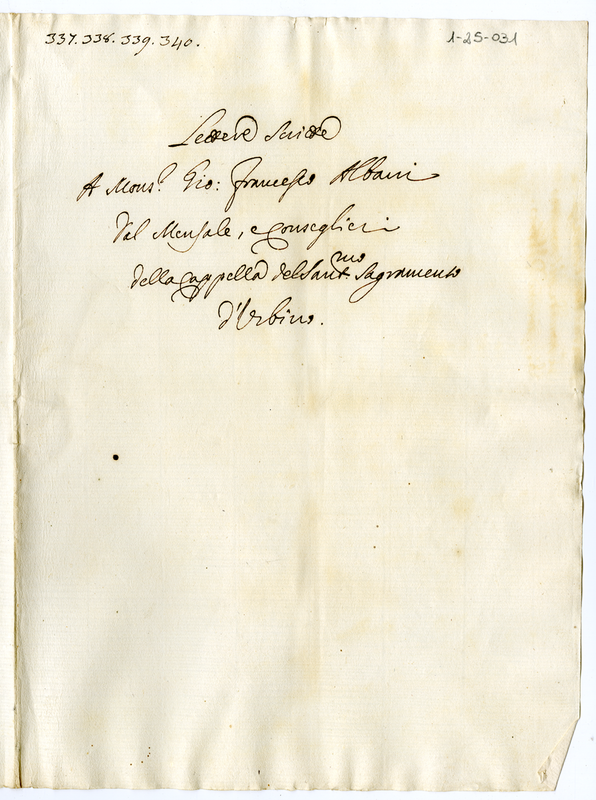 337. 338. 339. 340.
1-25-031
Lettere Scritte
A Mons.r Gio: Francesco Albani
dal Mensale, e Conseglieri
della Cappella del Sant.mo Sagramento
d'Urbino.